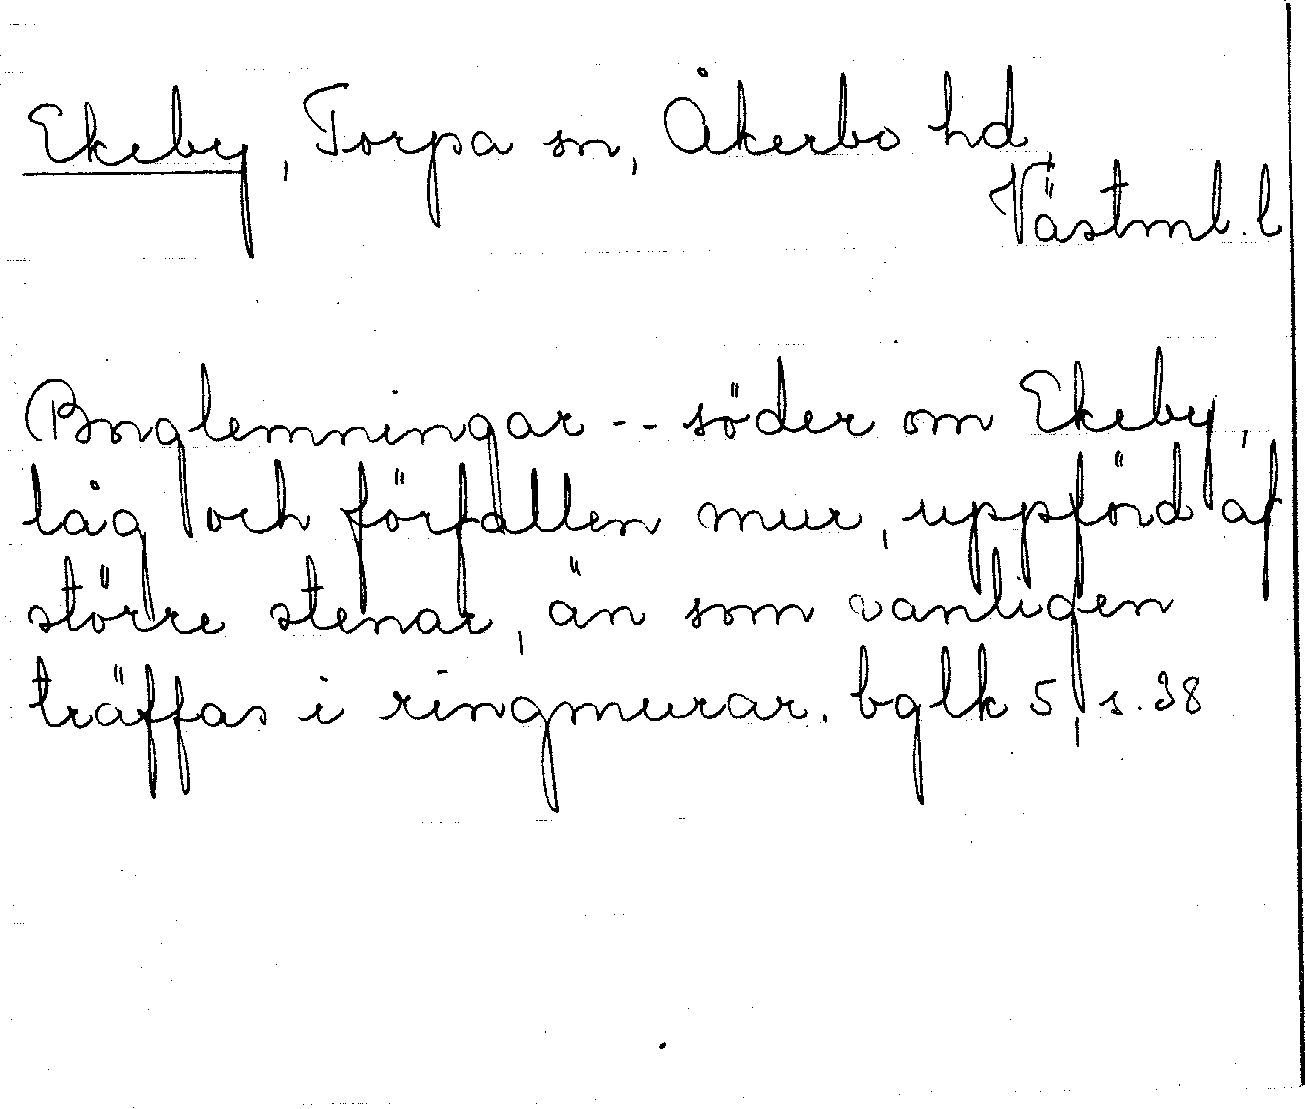 Ekeby, Torpa sn, Åkerbo hd
Västml. l
Borglemningar -- söder om Ekeby,
låg och förfallen mur, uppförd af
större stenar, än som vanligen
träffas i ringmurar. bglk 5, s. 38